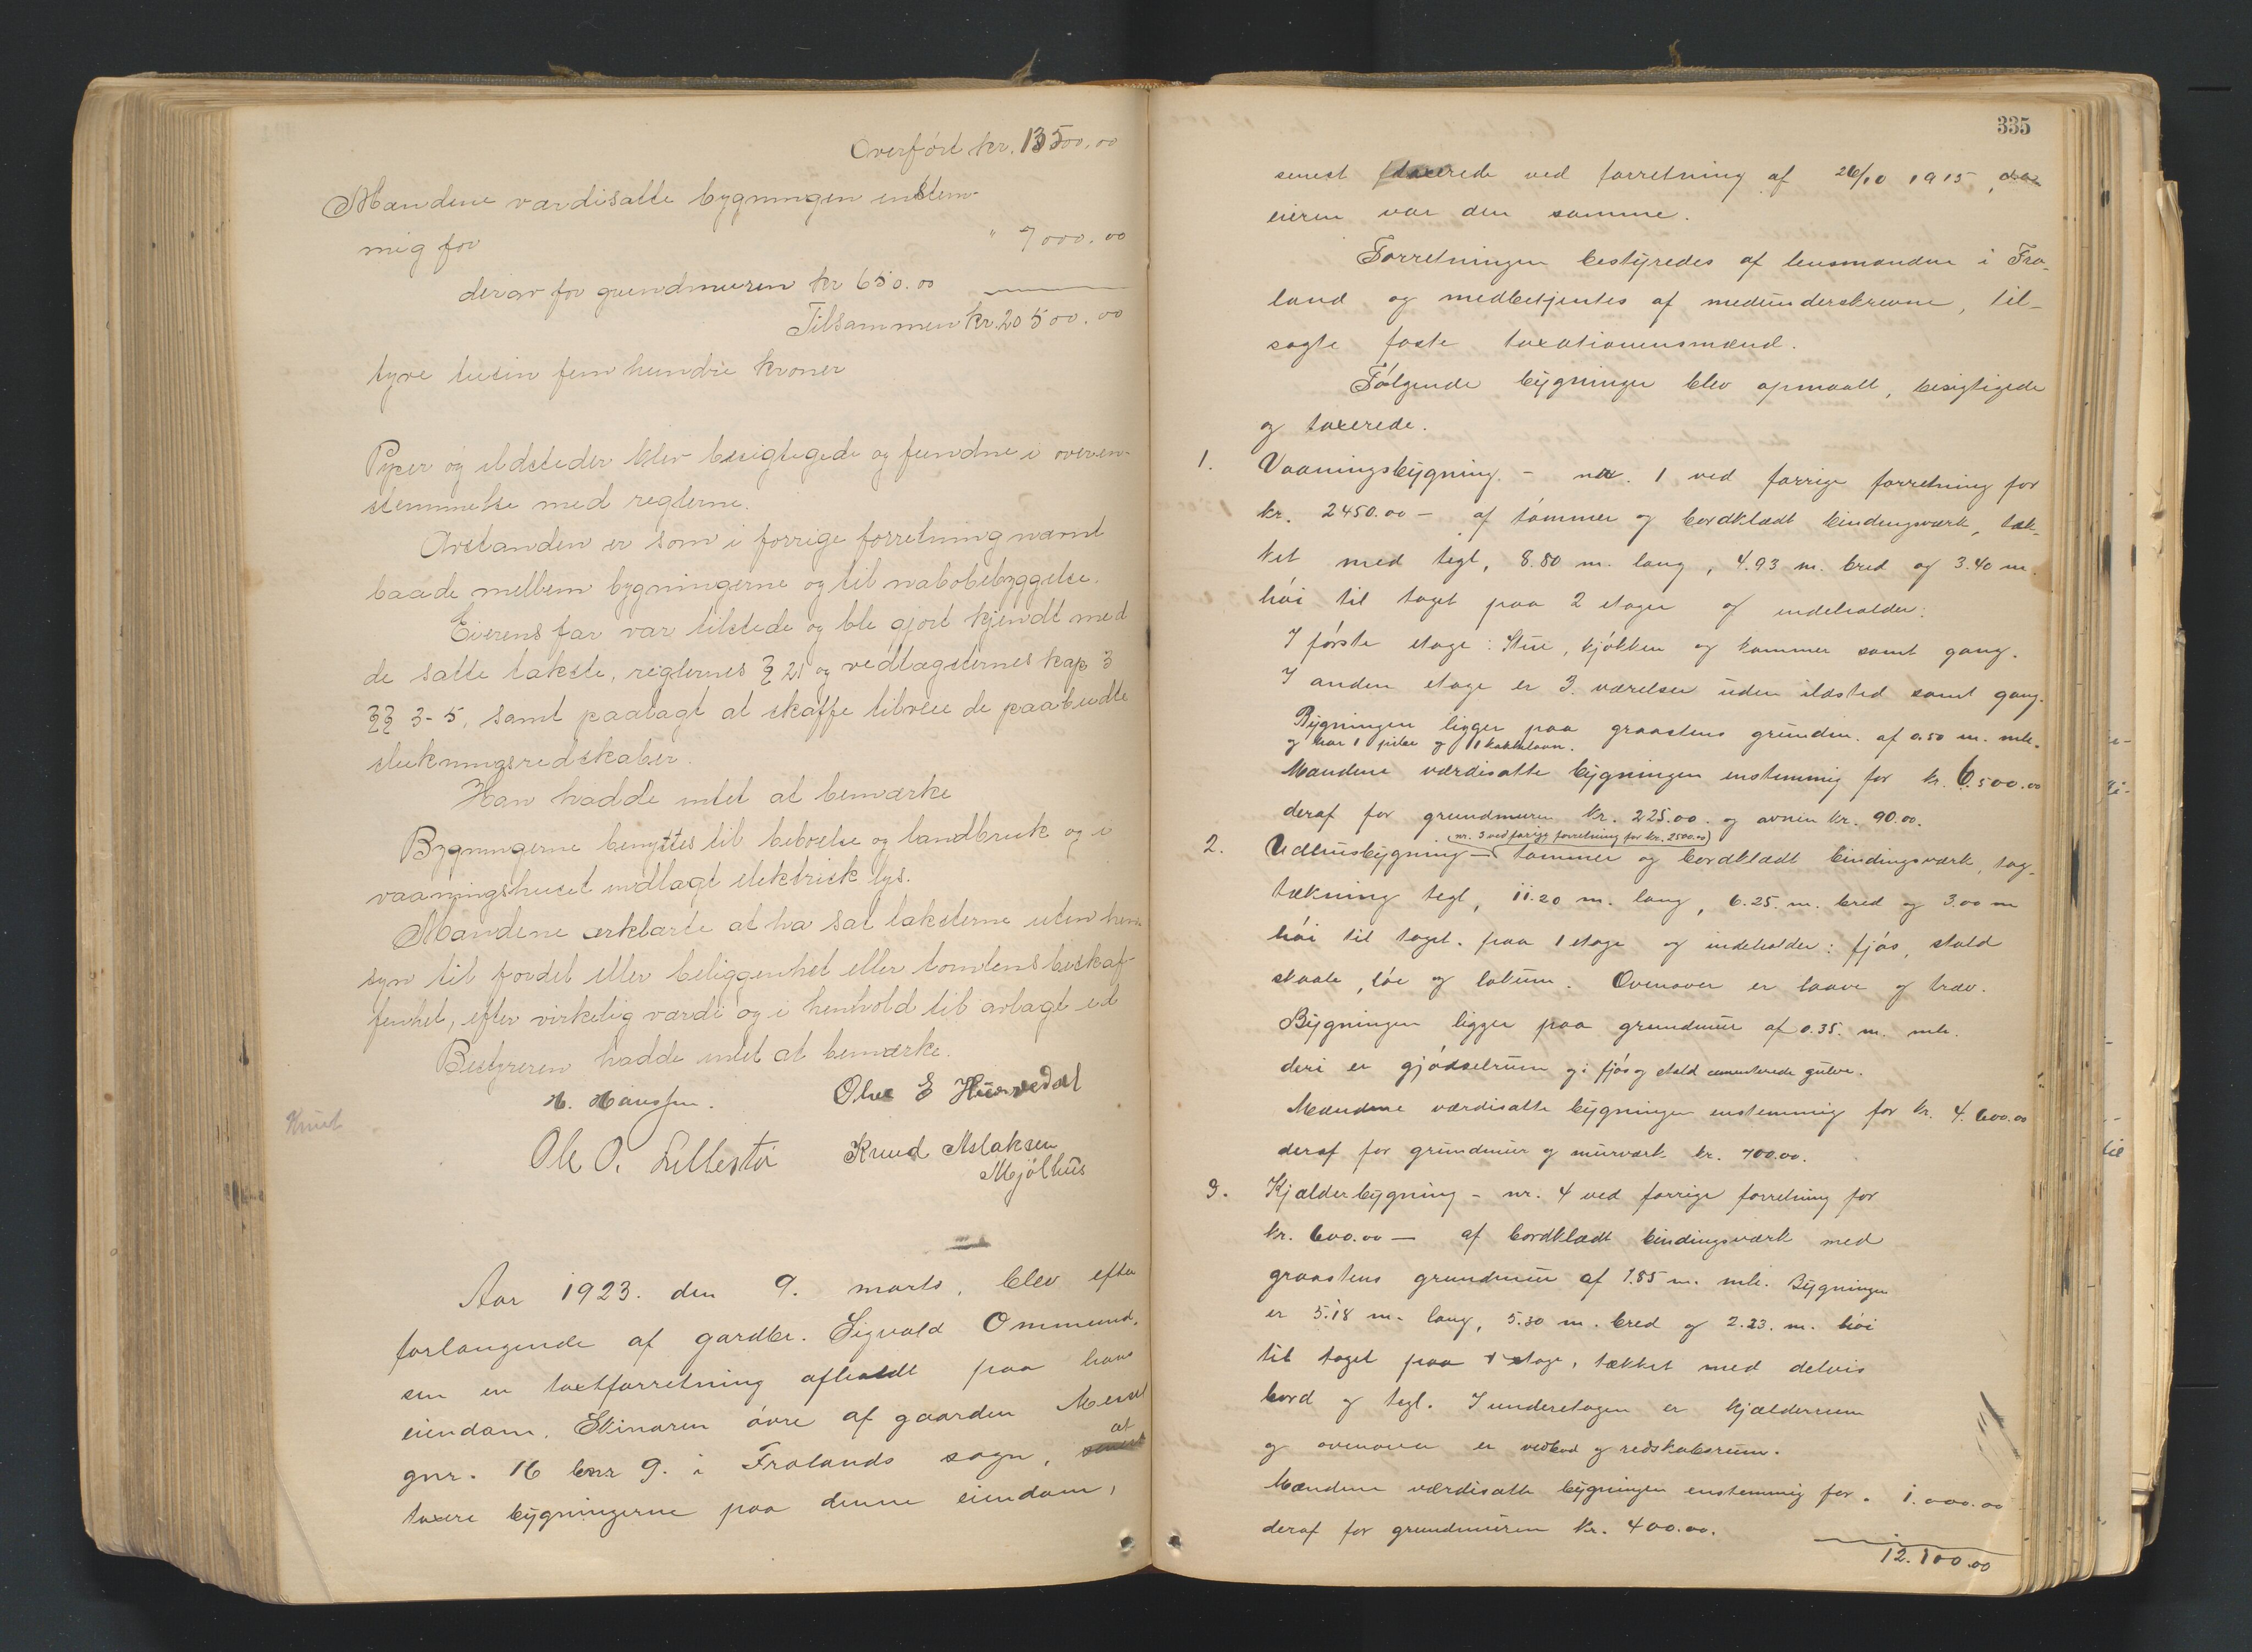 Overført kr. 13500.00
Mændene værdisatte bygningen enstem-
mig for " 7000.00
derav for grundmuren kr 650.00
Tilsammen kr. 20500.00
tyve tusin fem hundre kroner
Piper og ildsteder blev besigtigede og fundne i overen-
stemmelse med reglerne.
Avstanden er som i forrige forretning nævnt
baade mellem bygningerne og til nabobebyggelse.
Eierens far var tilstede og ble gjort kjendt med
de satte takste, reglernes § 21 og vedtægternes kap 3
§§ 3-5, samt paalagt at skaffe tilveie de paabudte
slukningsredskaber.
Han hadde intet at bemærke
Bygningerne benyttes til beboelse og landbruk og i
vaaningshuset indlagt elektrisk lys.
Mændene erklærte at ha sat taksterne uten hen-
syn til fordel eller beliggenhet eller tomtens beskaf-
fenhet, efter virkelig værdi og i henhold til avlagt ed
Bestyreren hadde intet at bemærke.
H. Hanssen. Olve E
Knut
Ole O. Lillestø Knud Aslaksen
Mjølhus
Aar 1923. den 9. marts, blev efter
forlangende af gardbr. Sigvald Ommund-
sen en taxtforretning afholdt paa hans
eiendom, øvre af gaarden
at
gnr. 16 bnr 9. i Frolands sogn, senest
taxere bygningerne paa denne eiendom,
335
senest taxerede ved forretning af 26/10 1915, da
eieren var den samme.
Forretningen bestyredes af lensmanden i Fro-
land og medbetjentes af medunderskrevne, til-
sagte faste taxationsmænd.
Følgende bygninger blev opmaalt, besigtigede
og taxerede.
1. Vaaningsbygning - nr. 1 ved forrige forretning for
kr. 2450.00 - af tømmer og bordklædt bindingsværk, tæk-
ket med tegl, 8.80 m. lang, 4.93 m. bred og 3.40 m.
høi til taget paa 2 etager og indeholder:
I første etage: Stue, kjøkken og kammer samt gang.
I anden etage er 3. værelser uden ildsted samt gang.
Bygningen ligger paa graastens grundm. af 0.50 m. mh.
og har 1 pibe og 1 kakkelovn.
Mændene værdisatte bygningen enstemmig for kr. 6.500.00
deraf for grundmuren kr. 225.00. og ovnen kr. 90.00.
(nr. 3 ved forige forretning for kr. 2500.00)
2. Udhusbygning - tømmer og bordklædt bindingsværk, tag-
tækning tegl, 11.20 m. lang, 6.25. m. bred og 3.00 m
høi til taget. paa 1 etage og indeholder: fjøs, stald
skaale, løe og lokum. Ovenover er laave og træv.
Bygningen ligger paa grundmur af 0.35. m. mh.
deri er gjødselrum og i fjøs og stald cementerede gulve.
Mændene værdisatte bygningen enstemmig for kr. 4.600.00
deraf for grundmur og murværk kr. 700.00.
3. Kjælderbygning - nr. 4 ved forrige forretning for
kr. 600.00 - af bordklædt bindingsværk med
graastens grundmur af 1.85 m. mh. Bygningen
er 5.18 m. lang, 5.30 m. bred og 2.23. m. høi
til taget paa 1 etage, tækket med delvis
bord og tegl. I underetagen er kjælderrum
og ovenover er vedbod og redskabsrum.
Mændene værdisatte bygningen enstemmig for. 1.000.00
deraf for grundmuren kr. 400.00.
12.100.00